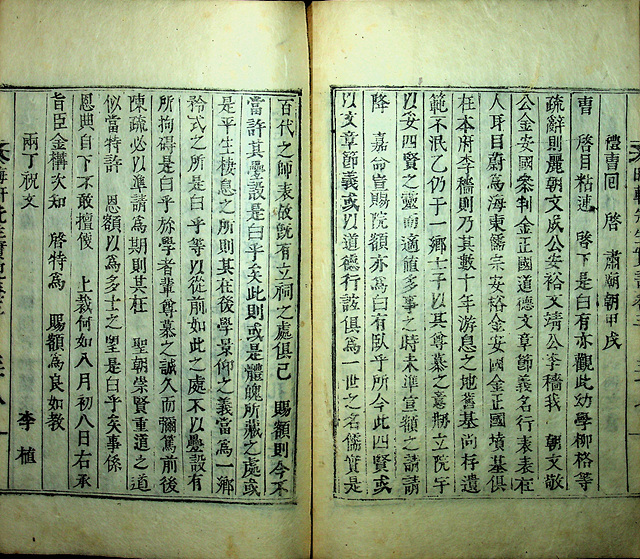 禮曹回 啓 肅廟朝甲戌
曹 啓目粘連 啓下是白有亦觀此幼學柳格等
疏辭則麗朝文成公安裕文靖公李穡我 朝文敬
公金安國叅判金正國道德文章節義名行表表在
人耳目蔚爲海東儒宗安裕金安國金正國墳墓俱
在本府李穡則乃其數十年游息之地舊基尚存遺
範不泯乙仍于一鄉士子以其尊慕之意刱立院宇
以妥四賢之靈而適値多事之時未準宣額之請請
降 嘉命宣賜院額亦爲白有臥乎所今此四賢或
以文章節義或以道德行誼俱爲一世之名儒實是
百代之師表故旣有立祠之處俱已 賜額則今不
當許其疊設是白乎矣此則或是體魄所藏之處或
是平生棲息之所則其在後學景仰之義當爲一鄉
矜式之所是白乎等以從前如此之處不以疊設有
所拘碍是白乎旀學者輩尊慕之誠久而彌篤前後
陳疏必以準請爲期則其在 聖朝崇賢重道之道
似當特許 恩額以爲多士之望是白乎矣事係
恩典自下不敢擅便 上裁何如八月初八日右承
旨臣金構次知 啓特爲 賜額爲良如教
兩丁祝文 李植